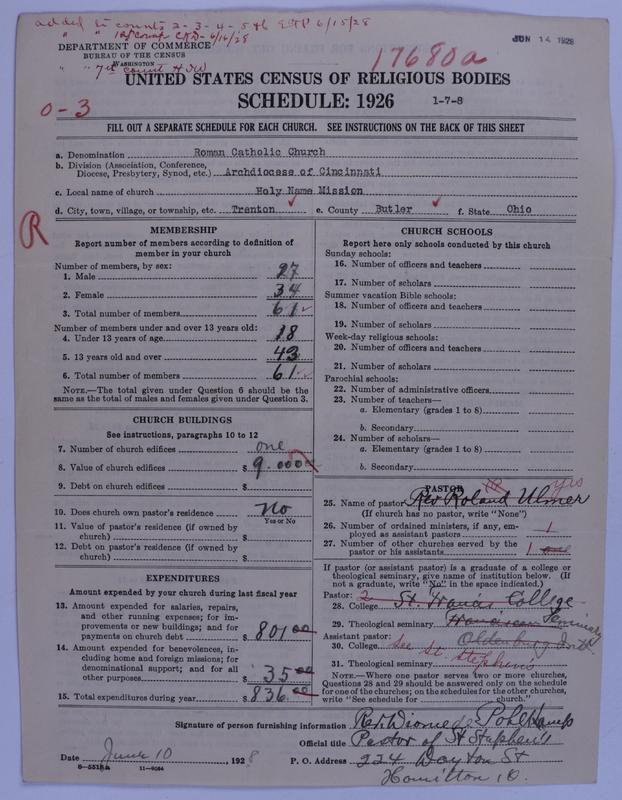 added to counts 2-3-4-5+6 EGP 6/15/28
" " 1st Comp CKD- 6/16/28
JUN 14 1928
DEPARTMENT OF COMMERCE
BUREAU OF THE CENSUS
WASHINGTON
" " 7th count HJW
17680a
UNITED STATES CENSUS OF RELIGIOUS BODIES
SCHEDULE: 1926 1-7-8
0-3
FILL OUT A SEPARATE SCHEDULE FOR EACH CHURCH. SEE INSTRUCTIONS ON THE BACK OF THIS SHEET
a. Denomination Roman Catholic Church
b. Division (Association, Conference,
Diocese, Presbytery, Synod, etc.) Archdiocese of Cincinnati
c. Local name of church Holy Name Mission
d. City, town, village, or township, etc. Trenton e. County Butler f. State Ohio
R
MEMBERSHIP
Report number of members according to definition of
member in your church
Number of members, by sex:
1. Male 27
2. Female 34
3. Total number of members 61
Number of members under and over 13 years old:
4. Under 13 years of age 18
5. 13 years old and over 43
6. Total number of members 61
NOTE.—The total given under Question 6 should be the
same as the total of males and females given under Question 3.
CHURCH BUILDINGS
See instructions, paragraphs 10 to 12
7. Number of church edifices one
8. Value of church edifices $ 9.000
9. Debt on church edifices $
10. Does church own pastor's residence? No
Yes or No
11. Value of pastor's residence (if owned by
church) $
12. Debt on pastor's residence (if owned by
church) $
EXPENDITURES
Amount expended by your church during last fiscal year
13. Amount expended for salaries, repairs,
and other running expenses; for im-
provements or new buildings; and for
payments on church debt $ 801 00
14. Amount expended for benevolences, in-
cluding home and foreign missions; for
denominational support; and for all
other purposes $ 35 00
15. Total expenditures during year $ 836.00
CHURCH SCHOOLS
Report here only schools conducted by this church
Sunday schools:
16. Number of officers and teachers
17. Number of scholars
Summer vacation Bible schools:
18. Number of officers and teachers
19. Number of scholars
Week-day religious schools:
20. Number of officers and teachers
21. Number of scholars
Parochial schools:
22. Number of administrative officers
23. Number of teachers—
a. Elementary (grades 1 to 8)
b. Secondary
24. Number of scholars—
a. Elementary (grades 1 to 8)
b. Secondary
PASTOR yes
25. Name of pastor Rev Roland Ulmer
(If church has no pastor, write "None")
26. Number of ordained ministers, if any, em-
ployed as assistant pastors 1
27. Number of other churches served by the
pastor or his assistants 1 one
If pastor (or assistant pastor) is a graduate of a college or
theological seminary, give name of institution below. (If
not a graduate, write "No" in the space indicated.)
Pastor: 2
28. College St. Francis College
29. Theological seminary Franciscan Seminary
Assistant pastor: Oldenburg Ind.
30. College See St Stephens
31. Theological seminary
NOTE.—Where one pastor serves two or more churches,
Questions 28 and 29 should be answered only on the schedule
for one of the churches; on the schedules for the other churches,
write "See schedule for church."
Signature of person furnishing information Rev. Diomede Pohlkamp
Official title Pastor of St Stephen's
Date June 10, 1928 P. O. Address 224 Dayton St
8—5518a 11—9064
Hamilton, O.